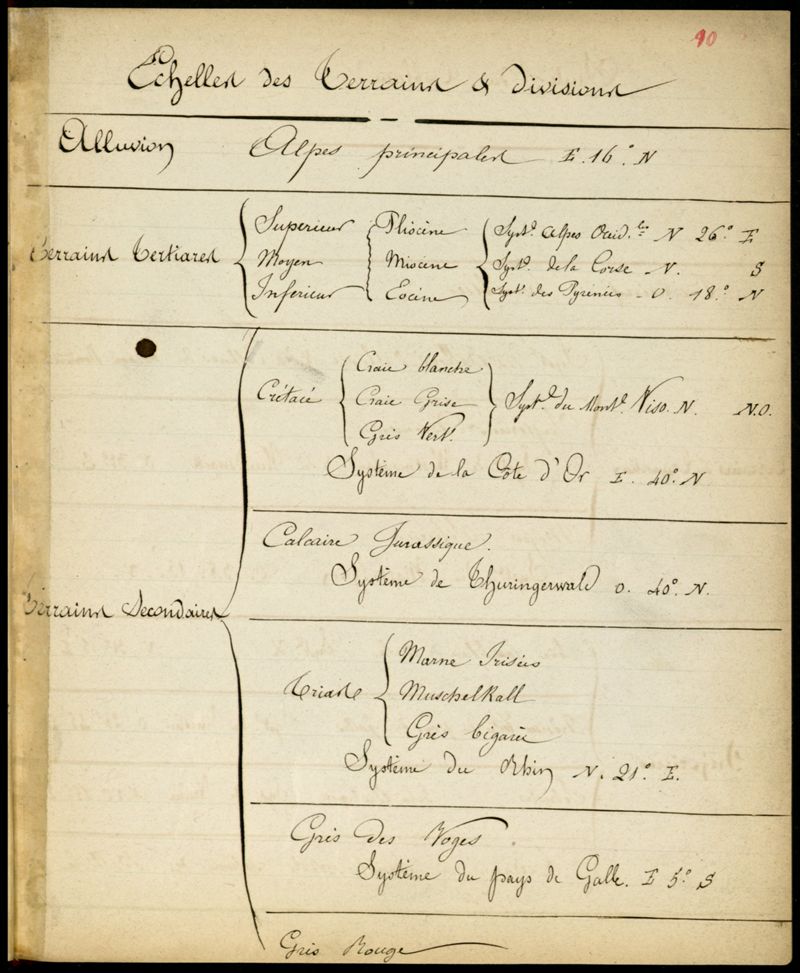 10
Echelles des Terrains & divisions
Alluvion Alpes principales E. 16° N
Superieur Pliocène Syst.e Alpes Occid.les N 26° E
Terrains Tertiares Moyen Miocene Syst.e de la Corse N. S
Inférieur Eocène Syst. des Pyrénées O. 18° N
Craie blanche
Crétacé Craie Grise Syst.e du Mont. Viso. N. N.O.
Grès Vert.
Système de la Côte d'Or E. 40° N
Calcaire Jurassique.
Système de Thuringerwald O. 40° N.
Terrains Secondaires
Marne Irisées
Trias Muschelkall
Grès bigarée
Système du Rhin N. 21° E.
Grès des Voges
Système du pays de Galle. E 5° S
Grès Rouge